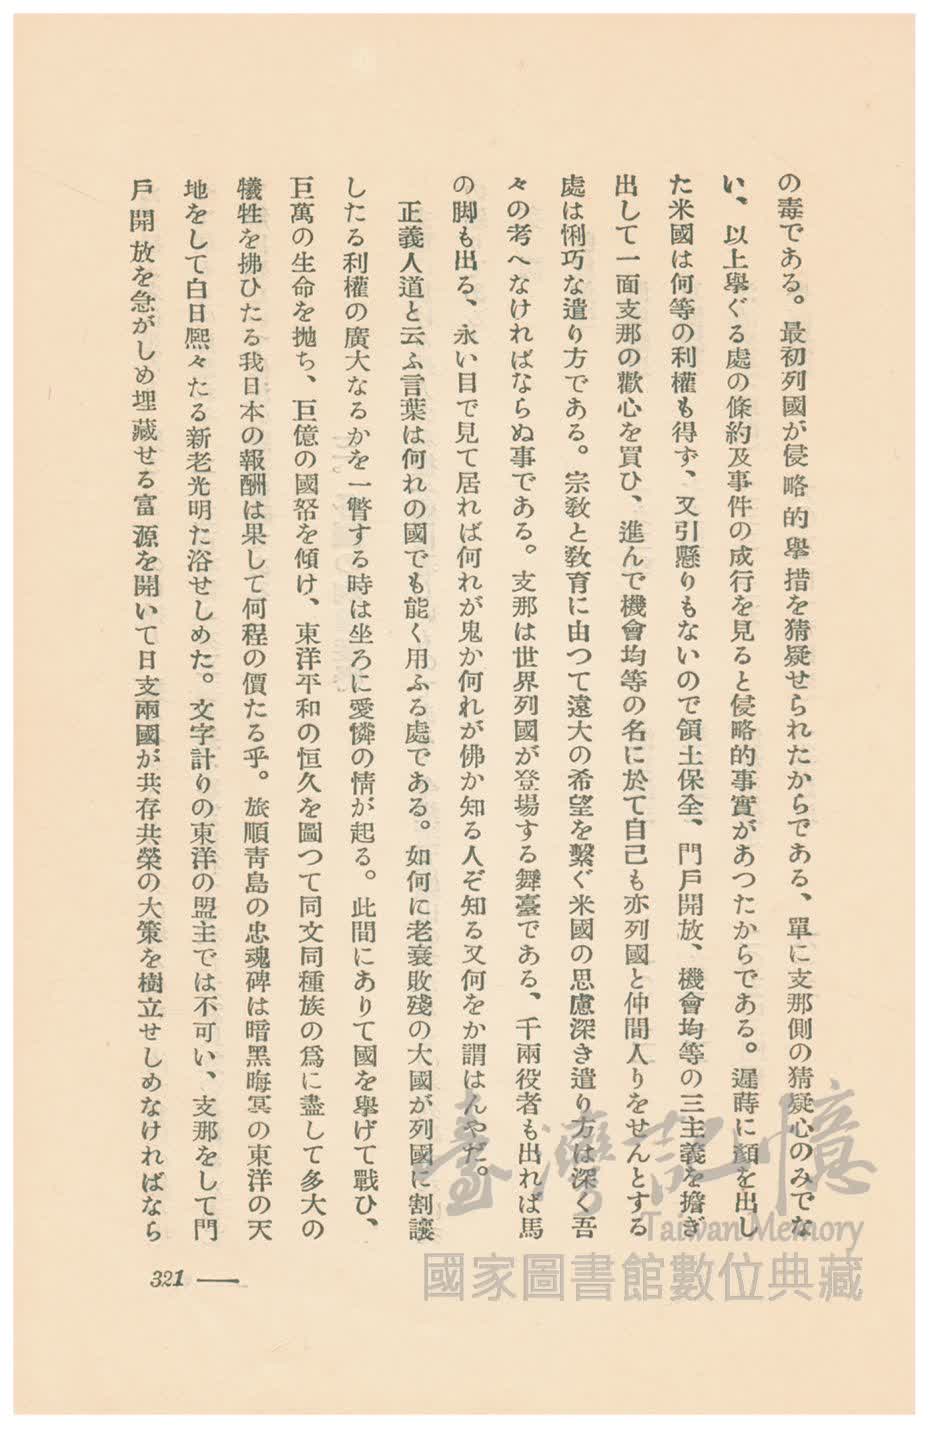 の毒である。最初列國が侵略的擧措を猜疑せられたからである、單に支那側の猜疑心のみでな
い、以上擧ぐる處の條約及事件の成行を見ると侵略的事實があつたからである。遲蒔に顏を出し
た米國は何等の利權も得ず、又引懸りもないので領土保全、門戶開放、機會均等の三主義を擔ぎ
出して一面支那の歡心を買ひ、進んで機會均等の名に於て自己も亦列國と仲間入りをせんとする
處は悧巧な遣り方である。宗敎と敎育に由つて遠大の希望を繫ぐ米國の思慮深き遣り方は深く吾
々の考へなければならぬ事である。支那は世界列國が登場する舞臺である、千兩役者も出れば馬
の脚も出る、永い目で見て居れば何れが鬼か何れが佛か知る人ぞ知る又何をか謂はんやだ。
正義人道と云ふ言葉は何れの國でも能く用ふる處である。如何に老衰敗殘の大國が列國に割讓
したる利權の廣大なるかを一瞥する時は坐ろに愛憐の情が起る。此間にありて國を擧げて戰ひ、
巨萬の生命を抛ち、巨億の國帑を傾け、東洋平和の恒久を圖つて同文同種族の爲に盡して多大の
犧牲を拂ひたる我日本の報酬は果して何程の價たる乎。旅順靑島の忠魂碑は暗黑晦冥の東洋の天
地をして白日熙々たる新老光明た浴せしめた。文字計りの東洋の盟主では不可い、支那をして門
戶開放を急がしめ埋藏せる富源を開いて日支兩國が共存共榮の大策を樹立せしめなければなら
321 —
臺灣記憶
Taiwan Memory
國家圖書館數位典藏